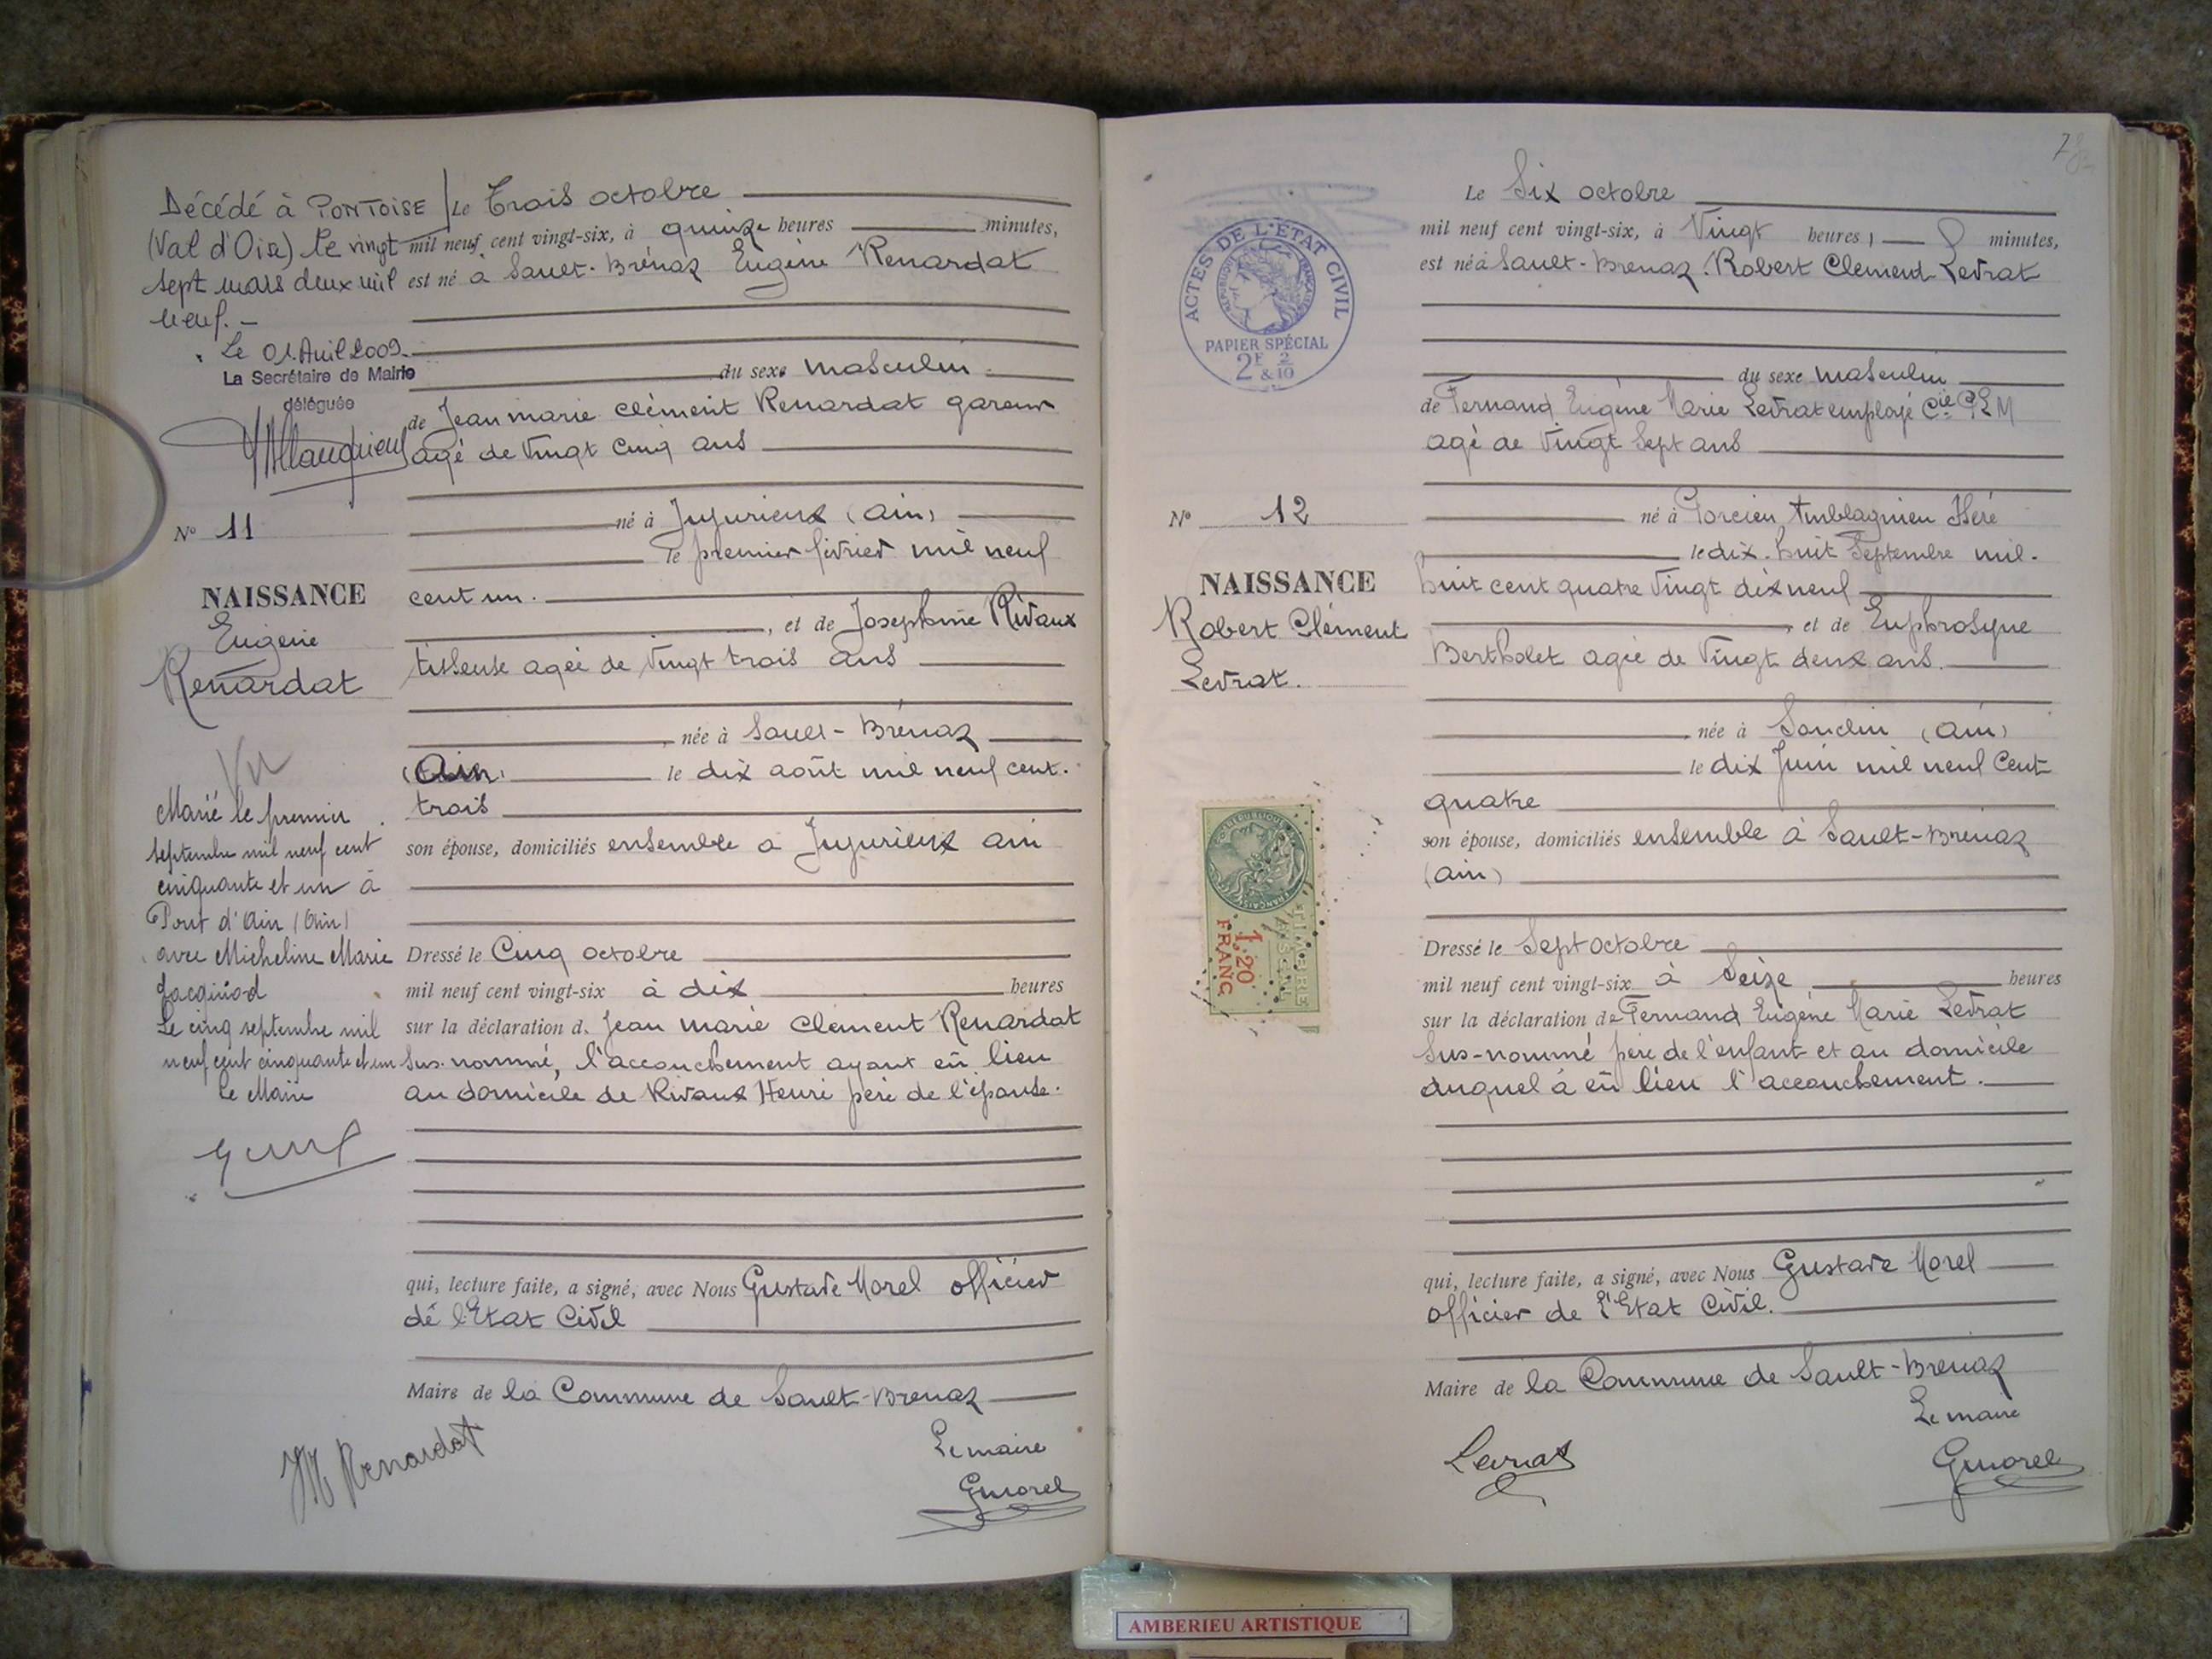 Décédé à PONTOISE
(Val d'Oise) le vingt
sept mars deux mil
neuf. -
Le 01 Avril 2009.
La Secrétaire de Mairie
déléguée
N° 11
NAISSANCE
Eugène
Renardat
Vu
Marié le premier
septembre mil neuf cent
cinquante et un à
Pont d'Ain (Ain)
avec Micheline Marie
Jacquiod
Le cinq septembre mil
neuf cent cinquante et un
Le Maire
Le Trois octobre
mil neuf cent vingt-six, à quinze heures minutes,
est né à Sault-Brénaz Eugène Renardat
du sexe masculin
de Jean marie clément Renardat gareur
agé de Vingt cinq ans
né à Jujurieux (ain)
le premier février mil neuf
cent un.
, et de Josephine Rivaux
tisseuse agée de Vingt trois ans
, née à Sault-Brénaz
(Ain) le dix août mil neuf cent.
trois
son épouse, domiciliés ensemble a Jujurieux ain
Dressé le Cinq octobre
mil neuf cent vingt-six à dix heures
sur la déclaration d. Jean marie Clement Renardat
Sus-nommé, l'accouchement ayant eû lieu
au domicile de Rivaux Henri père de l'épouse.
qui, lecture faite, a signé, avec Nous Gustave Morel officier
de l'Etat Civil
Maire de la Commune de Sault-Brenaz
JM Renardat
Le maire
GMorel
78
ACTES DE L'ÉTAT CIVIL
RÉPUBLIQUE FRANÇAISE
PAPIER SPÉCIAL
2F & 2/10
N° 12
NAISSANCE
Robert Clément
Levrat.
RÉPUBLIQUE FRANÇAISE
TIMBRE
FISCAL
1,20
FRANC
Le Six octobre
mil neuf cent vingt-six, à Vingt heures, minutes,
est né à Sault-Brenaz Robert Clement Levrat
du sexe masculin
de Fernand Eugène Marie Levrat employé Cie PLM
agé de Vingt Sept ans
né à Porcieu Amblagnieu Isère
le dix-huit Septembre mil-
huit cent quatre Vingt dix neuf
, et de Euphrosyne
Bertholet agée de Vingt deux ans.
, née à Souclin (ain)
le dix Juin mil neuf Cent
quatre
son épouse, domiciliés ensemble à Sault-Brenaz
(ain)
Dressé le Sept octobre
mil neuf cent vingt-six à Seize heures
sur la déclaration de Fernand Eugène Marie Levrat
Sus-nommé père de l'enfant et au domicile
duquel à eû lieu l'accouchement.
qui, lecture faite, a signé, avec Nous Gustave Morel
officier de l'Etat Civil.
Maire de la Commune de Sault-Brenaz
Le maire
Levrat
GMorel
AMBERIEU ARTISTIQUE